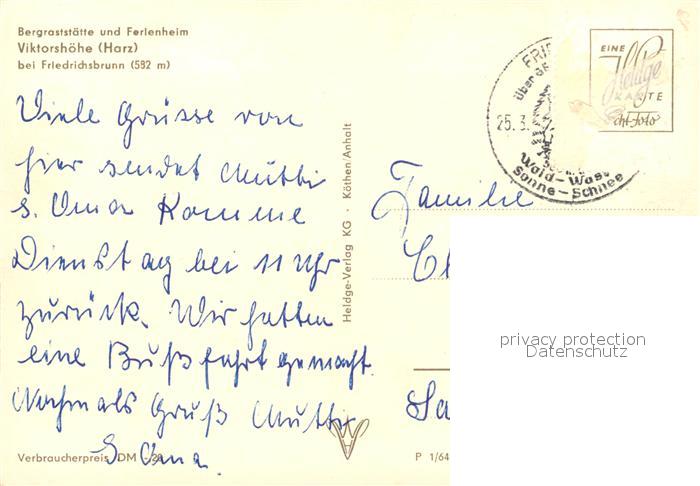 Bergraststätte und Ferienheim
Viktorshöhe (Harz)
bei Friedrichsbrunn (582 m)
Viele Grüsse von
hier sendet Mutti
s. Oma Komme
Dienstag bei 11 Uhr
zurück. Wir hatten
eine Bußfahrt gemacht.
Nochmals Gruß Mutti
s Oma.
Verbraucherpreis DM -,20
Heldge-Verlag KG · Köthen/Anhalt
P 1/64
FRIE
über de
25.3.
Wald - Wass
Sonne - Schnee
EINE
Heldge
KARTE
echt foto
Familie
Sa
privacy protection
Datenschutz